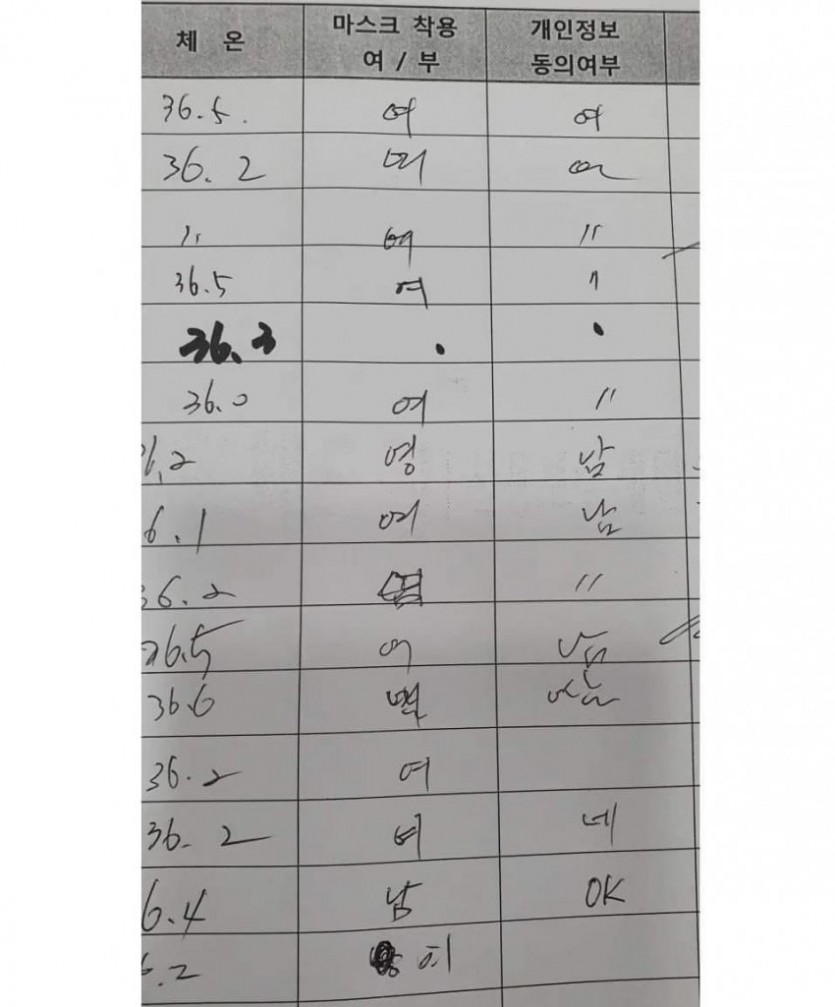 체 온 마스크 착용 여 / 부 개인정보 동의여부
36.5. 여 여
36. 2 여
〃 여 〃
36.5 여 〃
36.3 . .
36.0 여 〃
6.2 영 남
6.1 여 남
36.2 〃
36.5 여 남
36.6 남
36.2 여
36. 2 네
6.4 남 OK
6.2